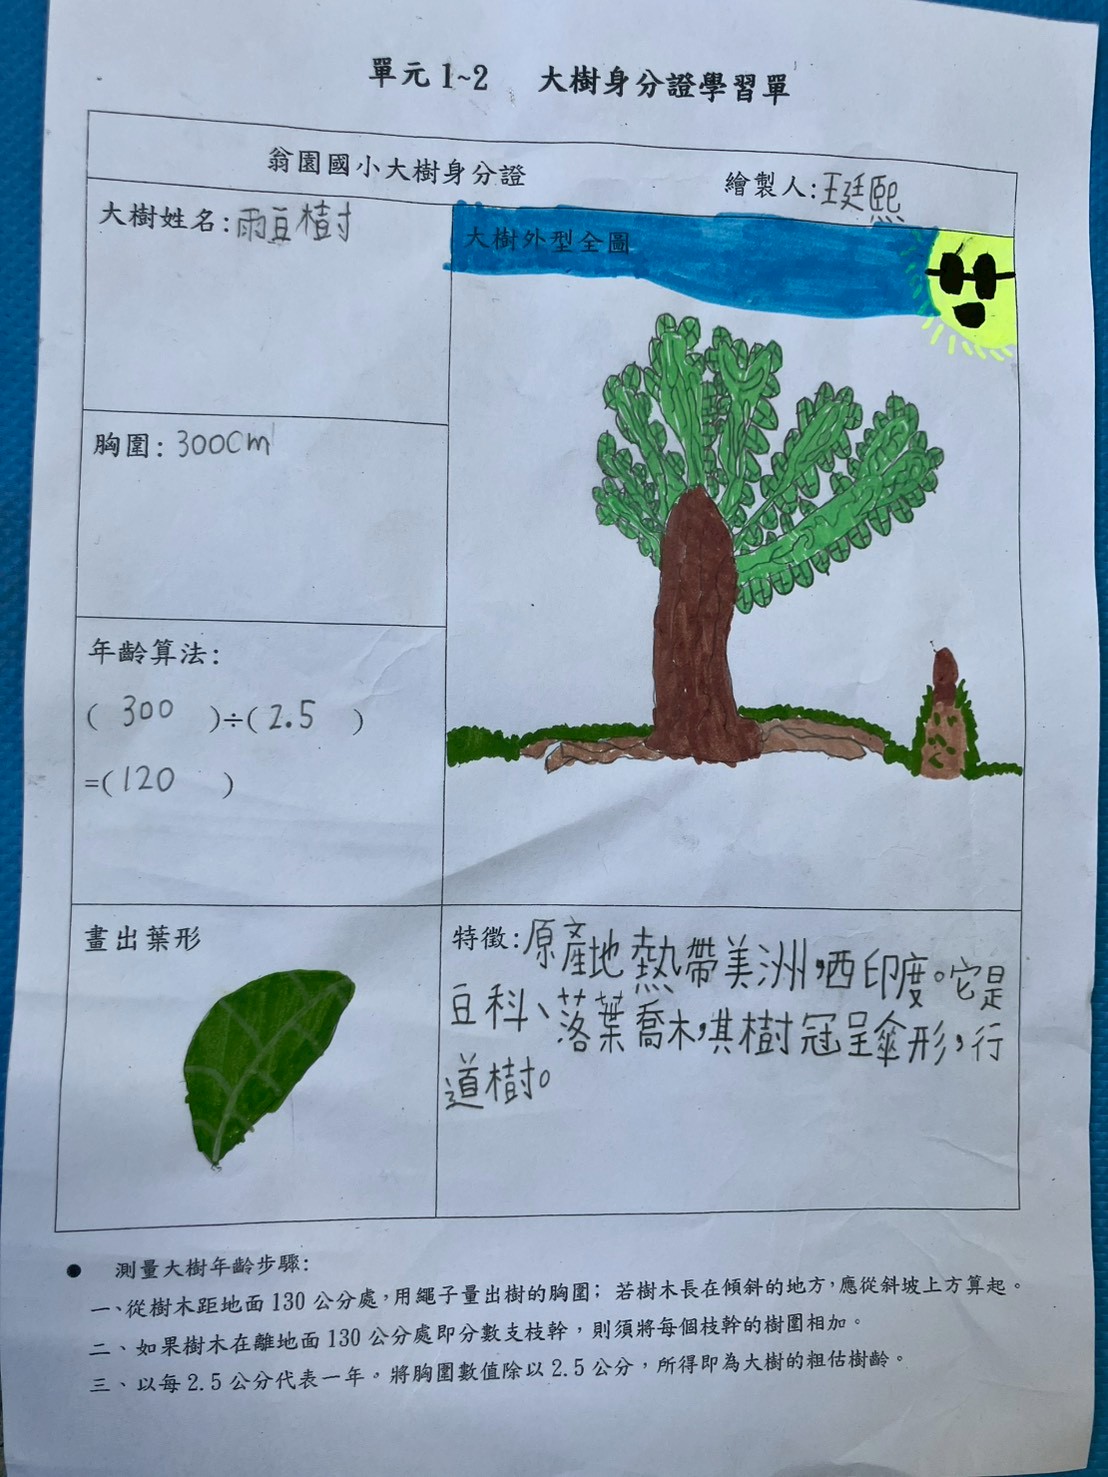 單元 1~2 大樹身分證學習單
翁園國小大樹身分證 繪製人:王廷熙
大樹姓名:雨豆樹
大樹外型全圖
胸圍:300cm
年齡算法:
( 300 )÷( 2.5 )
=( 120 )
畫出葉形
特徵:原產地熱帶美洲,西印度。它是
豆科、落葉喬木,其樹冠呈傘形,行
道樹。
● 測量大樹年齡步驟:
一、從樹木距地面 130 公分處,用繩子量出樹的胸圍;若樹木長在傾斜的地方,應從斜坡上方算起。
二、如果樹木在離地面 130 公分處即分數支枝幹,則須將每個枝幹的樹圍相加。
三、以每 2.5 公分代表一年。將胸圍數值除以 2.5 公分,所得即為大樹的粗估樹齡。